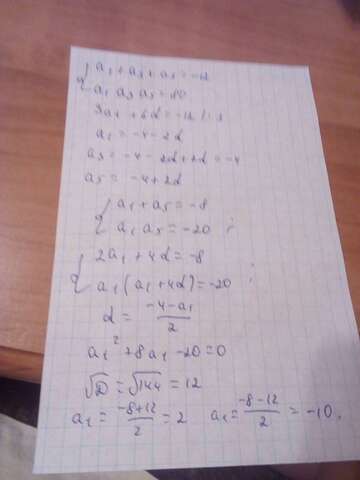 { a₁ + a₃ + a₅ = -12
a₁ a₃ a₅ = 80
3a₁ + 6d = -12 |:3
a₁ = -4 - 2d
a₃ = -4 - 2d + 2d = -4
a₅ = -4 + 2d
{ a₁ + a₅ = -8
a₁ a₅ = -20 ;
{ 2a₁ + 4d = -8
a₁(a₁ + 4d) = -20 ;
d = (-4 - a₁)/2
a₁² + 8a₁ - 20 = 0
√D = √144 = 12
a₁ = (-8 + 12)/2 = 2 a₁ = (-8 - 12)/2 = -10.